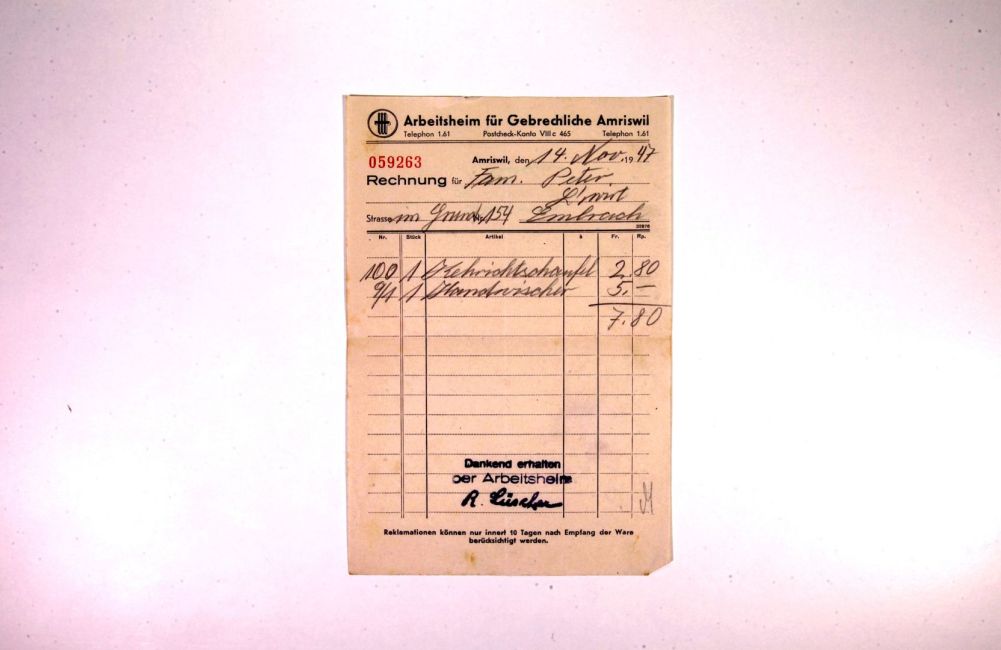 Arbeitsheim für Gebrechliche Amriswil
Telephon 1.61 Postcheck-Konto VIII c 465 Telephon 1.61
059263 Amriswil, den 14. Nov. 1947
Rechnung für Fam. Peter
L'wirt
Strasse im Grund Nr. 154 Embrach
Nr. Stück Artikel à Fr. Rp.
100 1 Kehrichtschaufel 2.80
9/1 1 Handwischer 5.—
7.80
Dankend erhalten
per Arbeitsheim
R. Lüscher
Reklamationen können nur innert 10 Tagen nach Empfang der Ware
berücksichtigt werden.